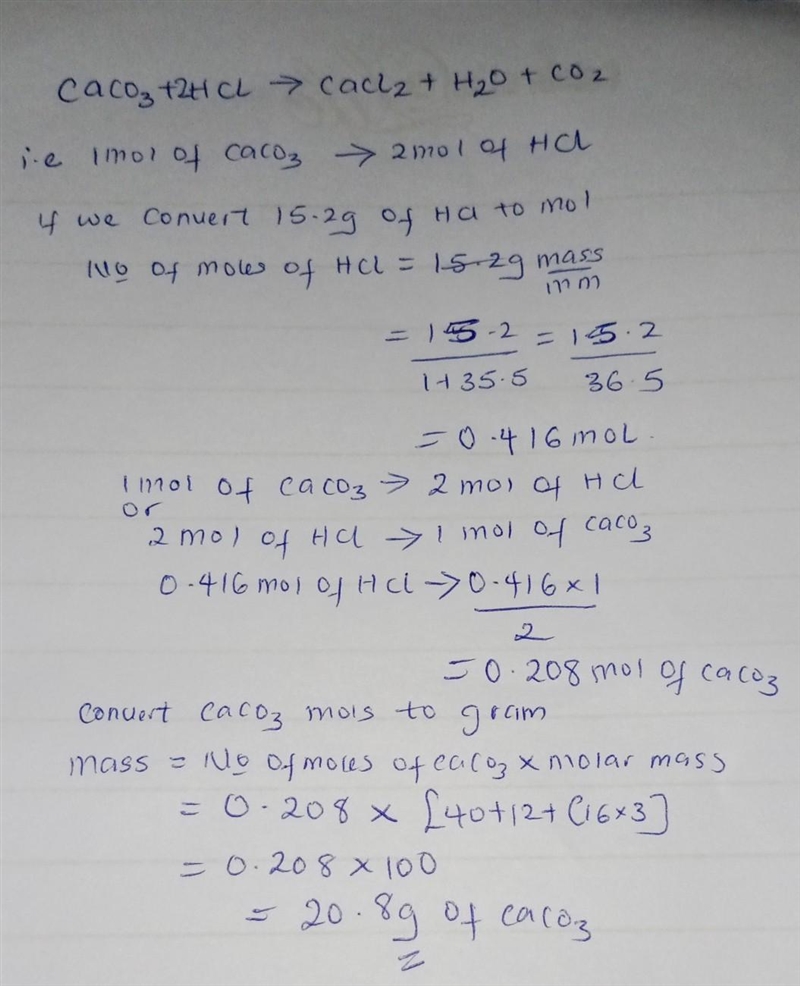 CaCO3+2HCl → CaCl2 + H2O + CO2
i.e 1mol of CaCO3 → 2mol of HCl
if we convert 15.2g of HCl to mol
No of moles of HCl = 15.2g mass/mm
= 15.2/1+35.5 = 15.2/36.5
= 0.416mol.
1mol of CaCO3 → 2mol of HCl
or
2mol of HCl → 1 mol of CaCO3
0.416mol of HCl → 0.416×1/2
= 0.208mol of CaCO3
Convert CaCO3 mols to gram
mass = No of moles of CaCO3 × molar mass
= 0.208 × [40+12+(16×3]
= 0.208×100
= 20.8g of CaCO3